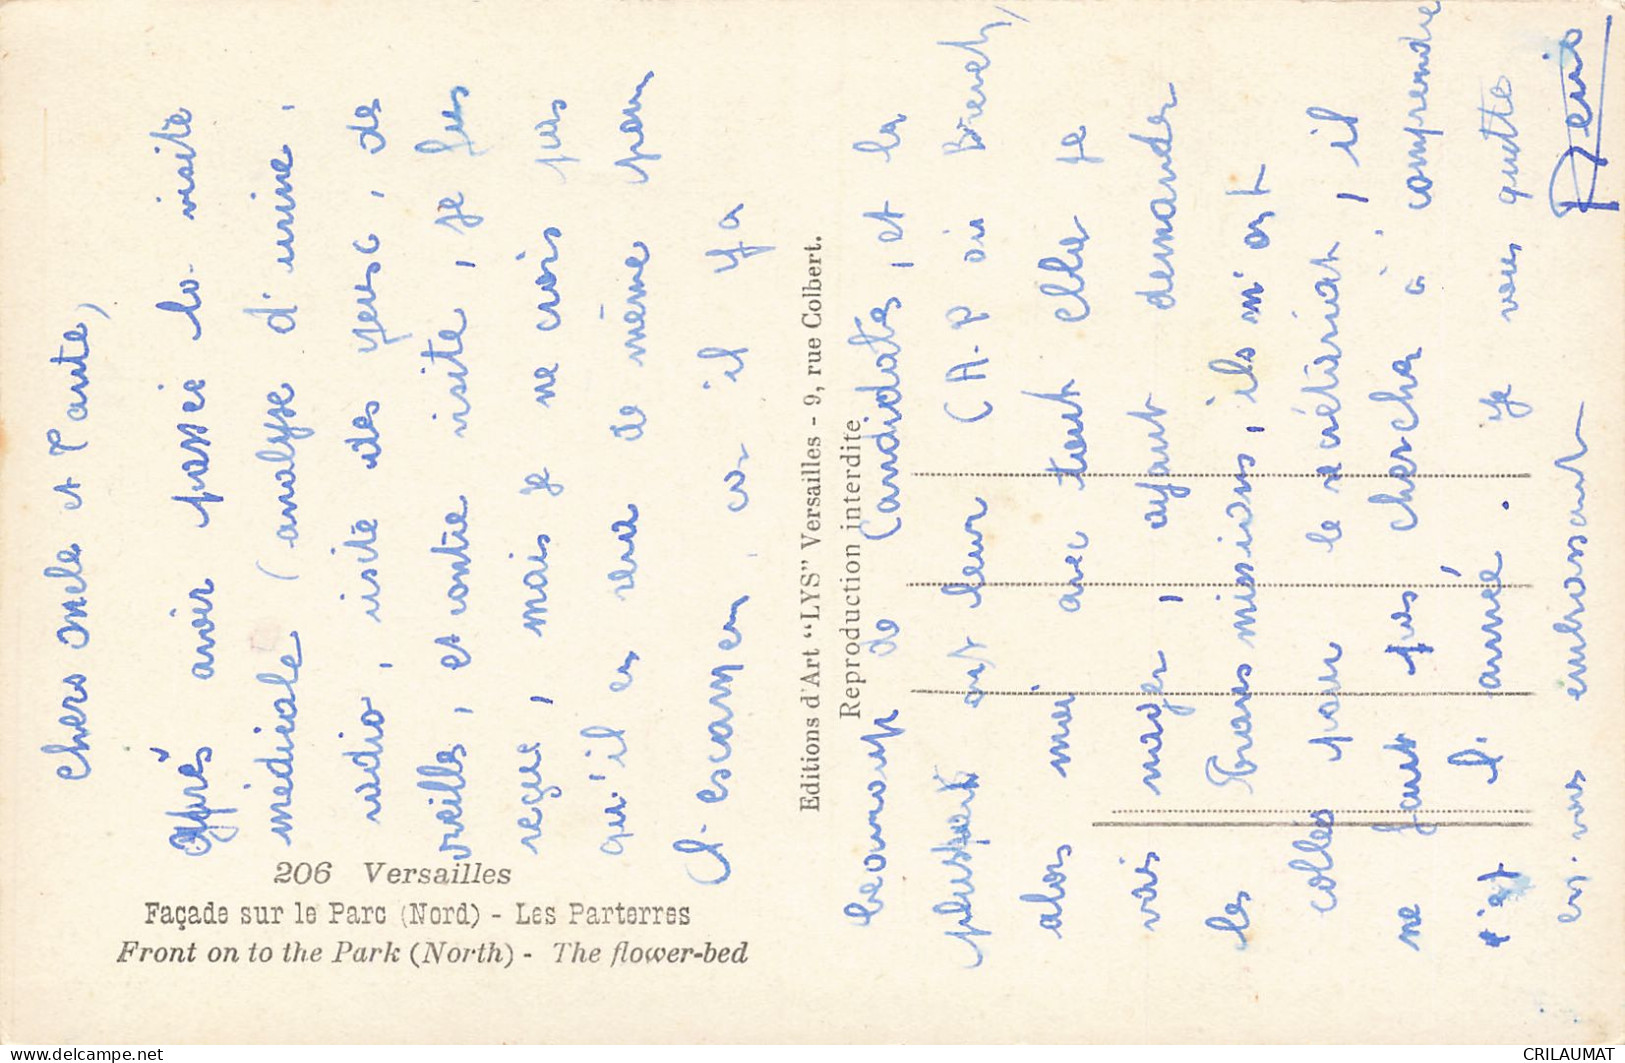 Chers Oncle et Tante,
après avoir passée la visite
médicale (analyse d'urine,
radio, visite des yeux, des
oreilles, et contre visite, je fus
reçue, mais je ne crois pas
qu'il en sera de même pour
l'examen, car il y a
beaucoup de candidates, et la
plupart ont leur CA-P ou Brevet,
alors moi avec tout cela je
vais nager, ayant demander
les Transmissions, ils m'ont
collés pour le secrétariat, il
ne faut pas cherché à comprendre
c'est l'armé. Je vous quitte
en vous embrassant
206 Versailles
Façade sur le Parc (Nord) - Les Parterres
Front on to the Park (North) - The flower-bed
Editions d'Art "LYS" Versailles - 9, rue Colbert.
Reproduction interdite
CRILAUMAT